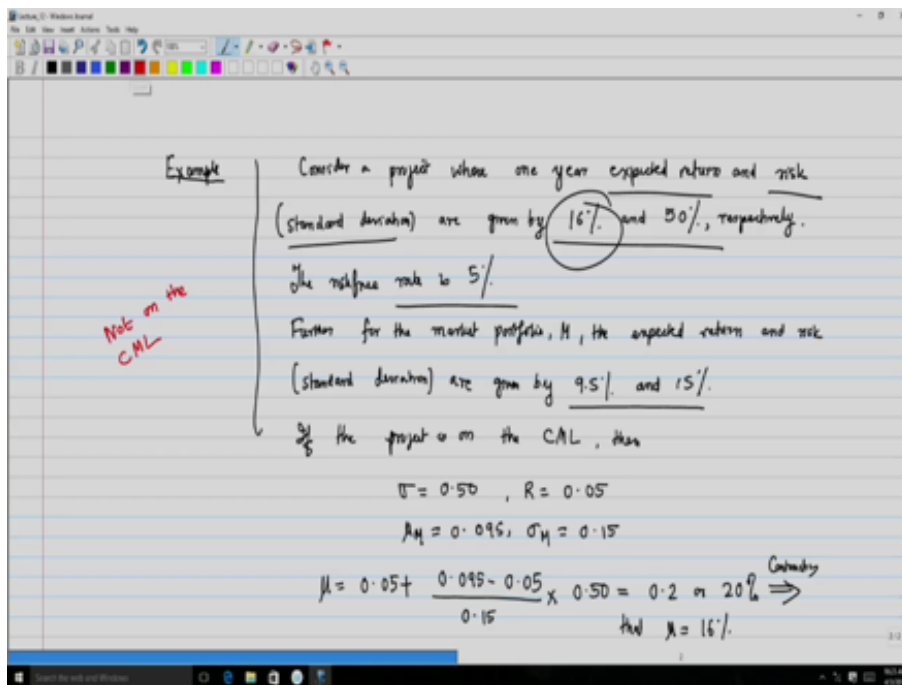 Lecture_12 - Windows Journal
File Edit View Insert Actions Tools Help
Example
Consider a project whose one year expected return and risk
(standard deviation) are given by 16% and 50%, respectively.
The riskfree rate is 5%.
Further for the market portfolio, M, the expected return and risk
(standard deviation) are given by 9.5% and 15%.
If the project is on the CAL, then
Not on the
CML
σ = 0.50 , R = 0.05
μM = 0.095, σM = 0.15
μ = 0.05 + (0.095 - 0.05)/0.15 × 0.50 = 0.2 or 20% ⇒
that μ = 16%.
Search the web and Windows